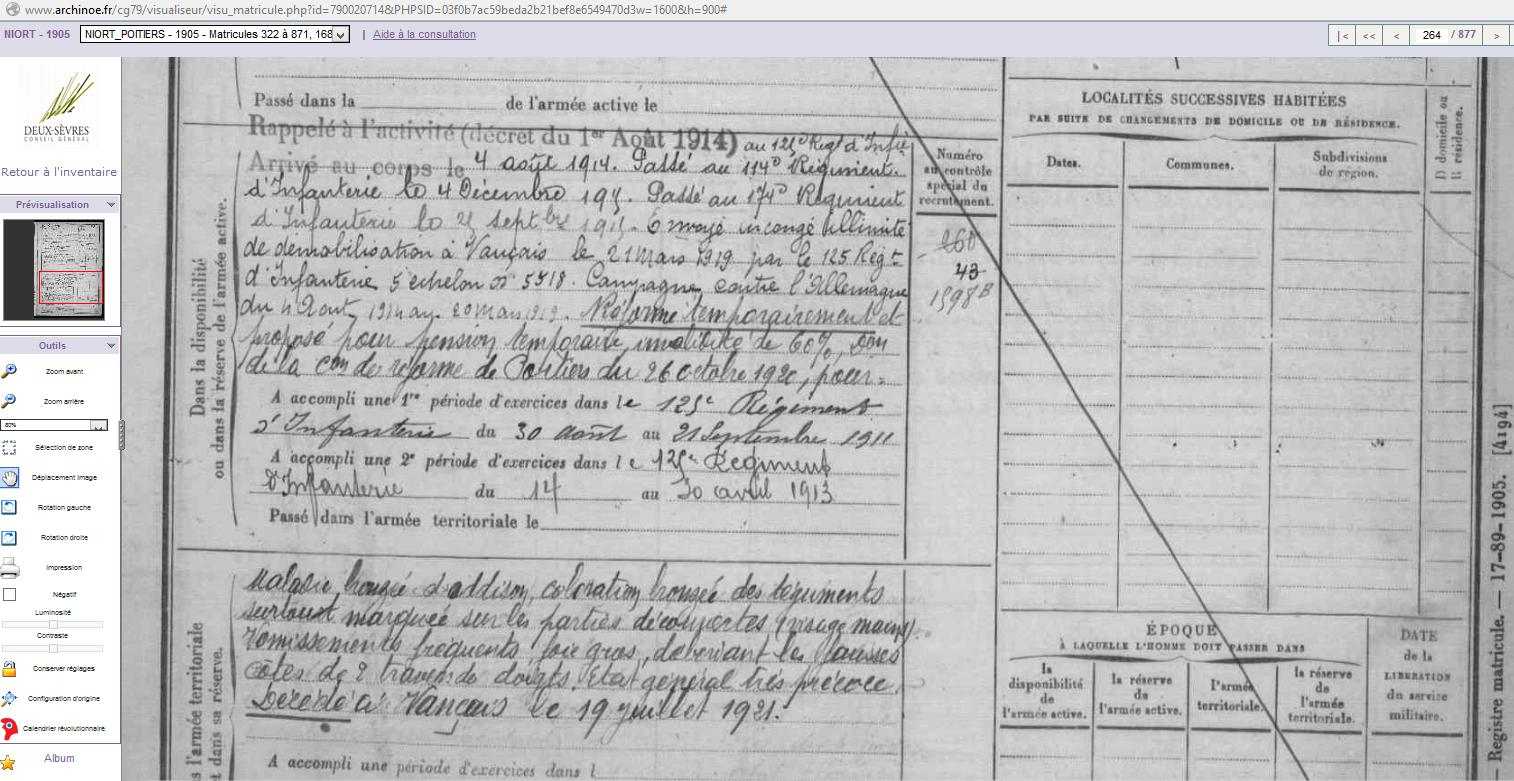 www.archinoe.fr/cg79/visualiseur/visu_matricule.php?id=790020714&PHPSID=03f0b7ac59beda2b21bef8e6549470d3w=1600&h=900#
NIORT - 1905
NIORT_POITIERS - 1905 - Matricules 322 à 871, 168
| Aide à la consultation
|< << < 264 / 877 >
DEUX-SÈVRES
CONSEIL GÉNÉRAL
Retour à l'inventaire
Prévisualisation
Outils
Zoom avant
Zoom arrière
80%
Sélection de zone
Déplacement image
Rotation gauche
Rotation droite
Impression
Négatif
Luminosité
Contraste
Conserver réglages
Configuration d'origine
Calendrier révolutionnaire
Album
Passé dans la de l'armée active le
Rappelé à l'activité (décret du 1er Août 1914) au 125e Regt d'Infie
Arrivé au corps le 4 août 1914. Passé au 114e Régiment
d'Infanterie le 4 Décembre 191 . Passé au 174e Régiment
d'Infanterie le 25 septbre 191 . Envoyé en congé illimité
de démobilisation à Vançais le 21 Mars 1919 par le 125 Régt
d'Infanterie 5e échelon no 5518. Campagne contre l'Allemagne
du 4 Août 1914 au 20 Mars 1919. Réformé temporairement et
proposé pour pension temporaire, invalidité de 60%,
de la Con de réforme de Poitiers du 26 octobre 1920, pour:
A accompli une 1re période d'exercices dans le 125e Régiment
d'Infanterie du 30 août au 21 Septembre 1911
A accompli une 2e période d'exercices dans le 125e Régiment
d'Infanterie du 14 au 30 avril 1913
Passé dans l'armée territoriale le
Dans la disponibilité
ou dans la réserve de l'armée active.
Numéro
au contrôle
spécial du
recrutement.
260
43
1598B
Maladie bronzée d'addison, coloration bronzée des téguments
surtout marquée sur les parties découvertes (visage mains)
vomissements fréquents, foie gros, débordant les fausses
côtes de 2 travers de doigts. Etat général très précaire
Décédé à Vançais le 19 juillet 1921.
A accompli une période d'exercices dans l
s l'armée territoriale
t dans sa réserve.
LOCALITÉS SUCCESSIVES HABITÉES
PAR SUITE DE CHANGEMENTS DE DOMICILE OU DE RÉSIDENCE.
Dates.
Communes.
Subdivisions
de région.
D domicile ou
R résidence.
ÉPOQUE
À LAQUELLE L'HOMME DOIT PASSER DANS
la
disponibilité
de
l'armée active.
la réserve
de
l'armée active.
l'armée
territoriale.
la réserve
de
l'armée
territoriale.
DATE
de la
LIBÉRATION
du service
militaire.
Registre matricule. — 17-89-1905. [4194]